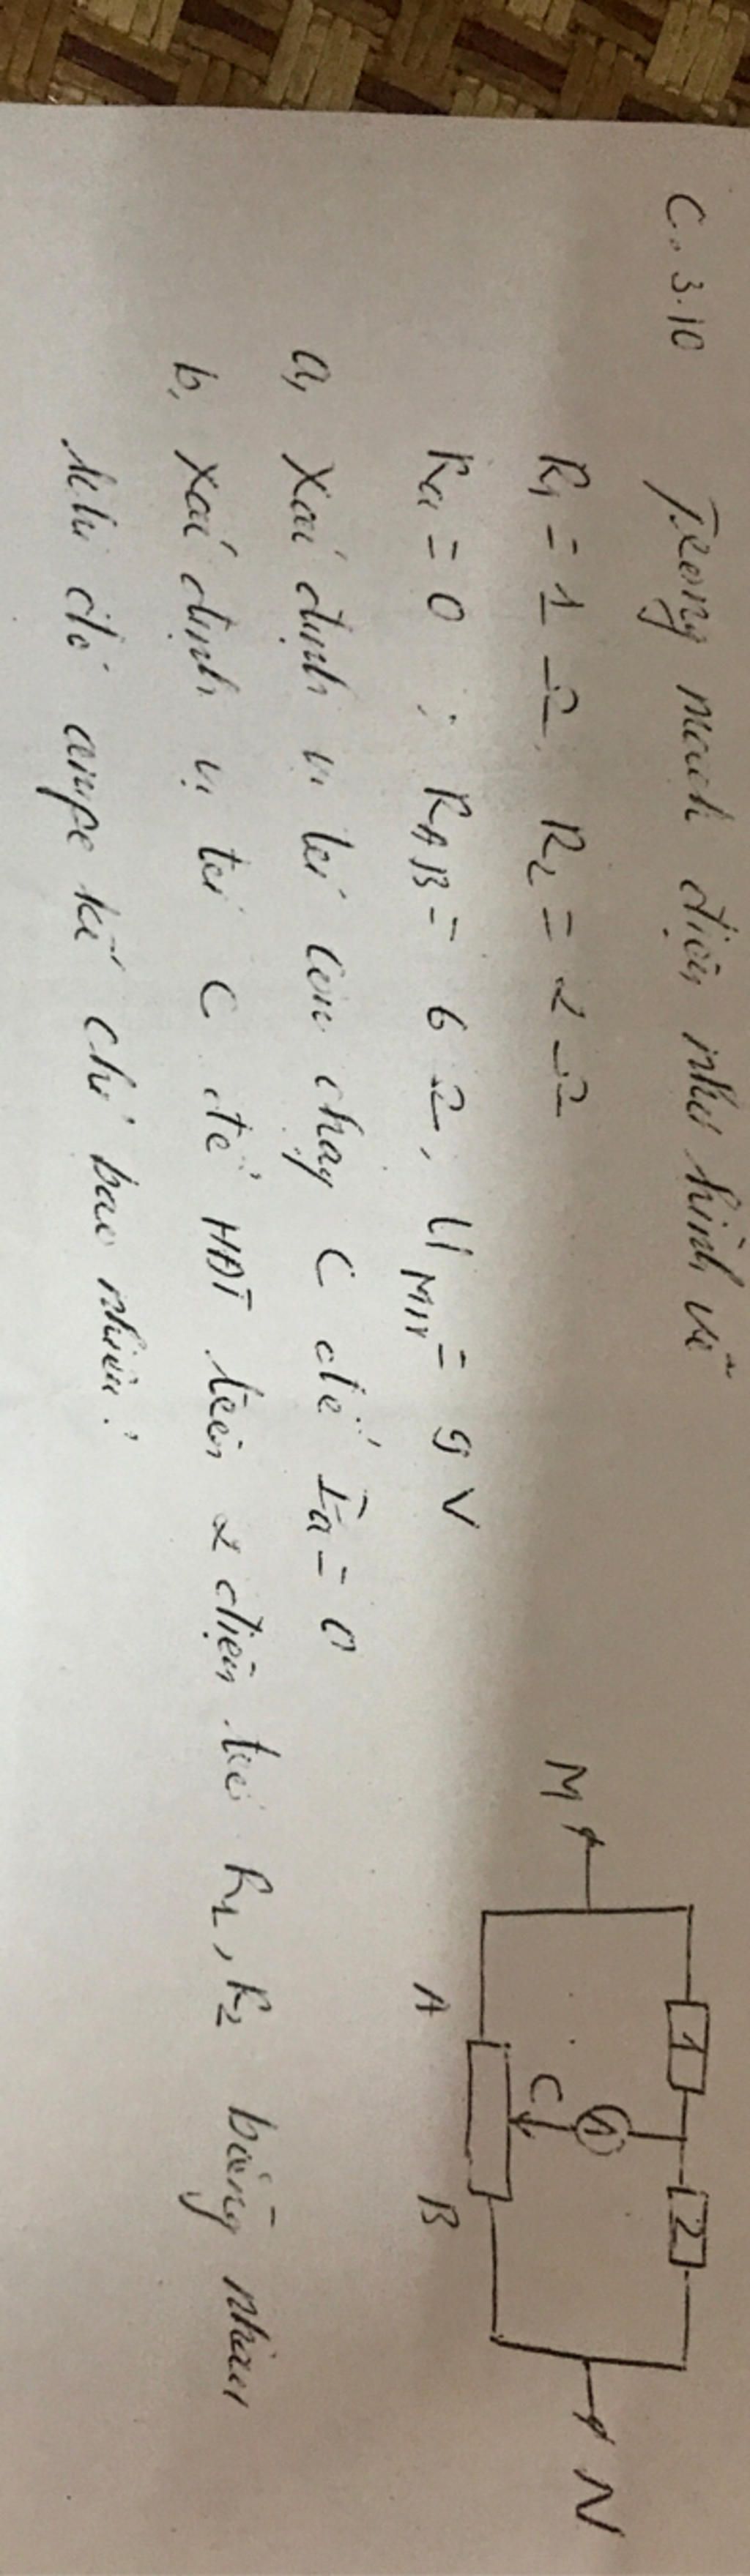 C.3.10 Trong mạch điện như hình vẽ
R₁ = 1 Ω, R₂ = 2 Ω
Ra = 0 ; RAB = 6 Ω, UMN = 9 V
a, Xác định vị trí con chạy C để Ia = 0
b, Xác định vị trí C để HĐT trên 2 điện trở R₁, R₂ bằng nhau
khi đó ampe kế chỉ bao nhiêu ?
M
1
2
N
A
C
A
B